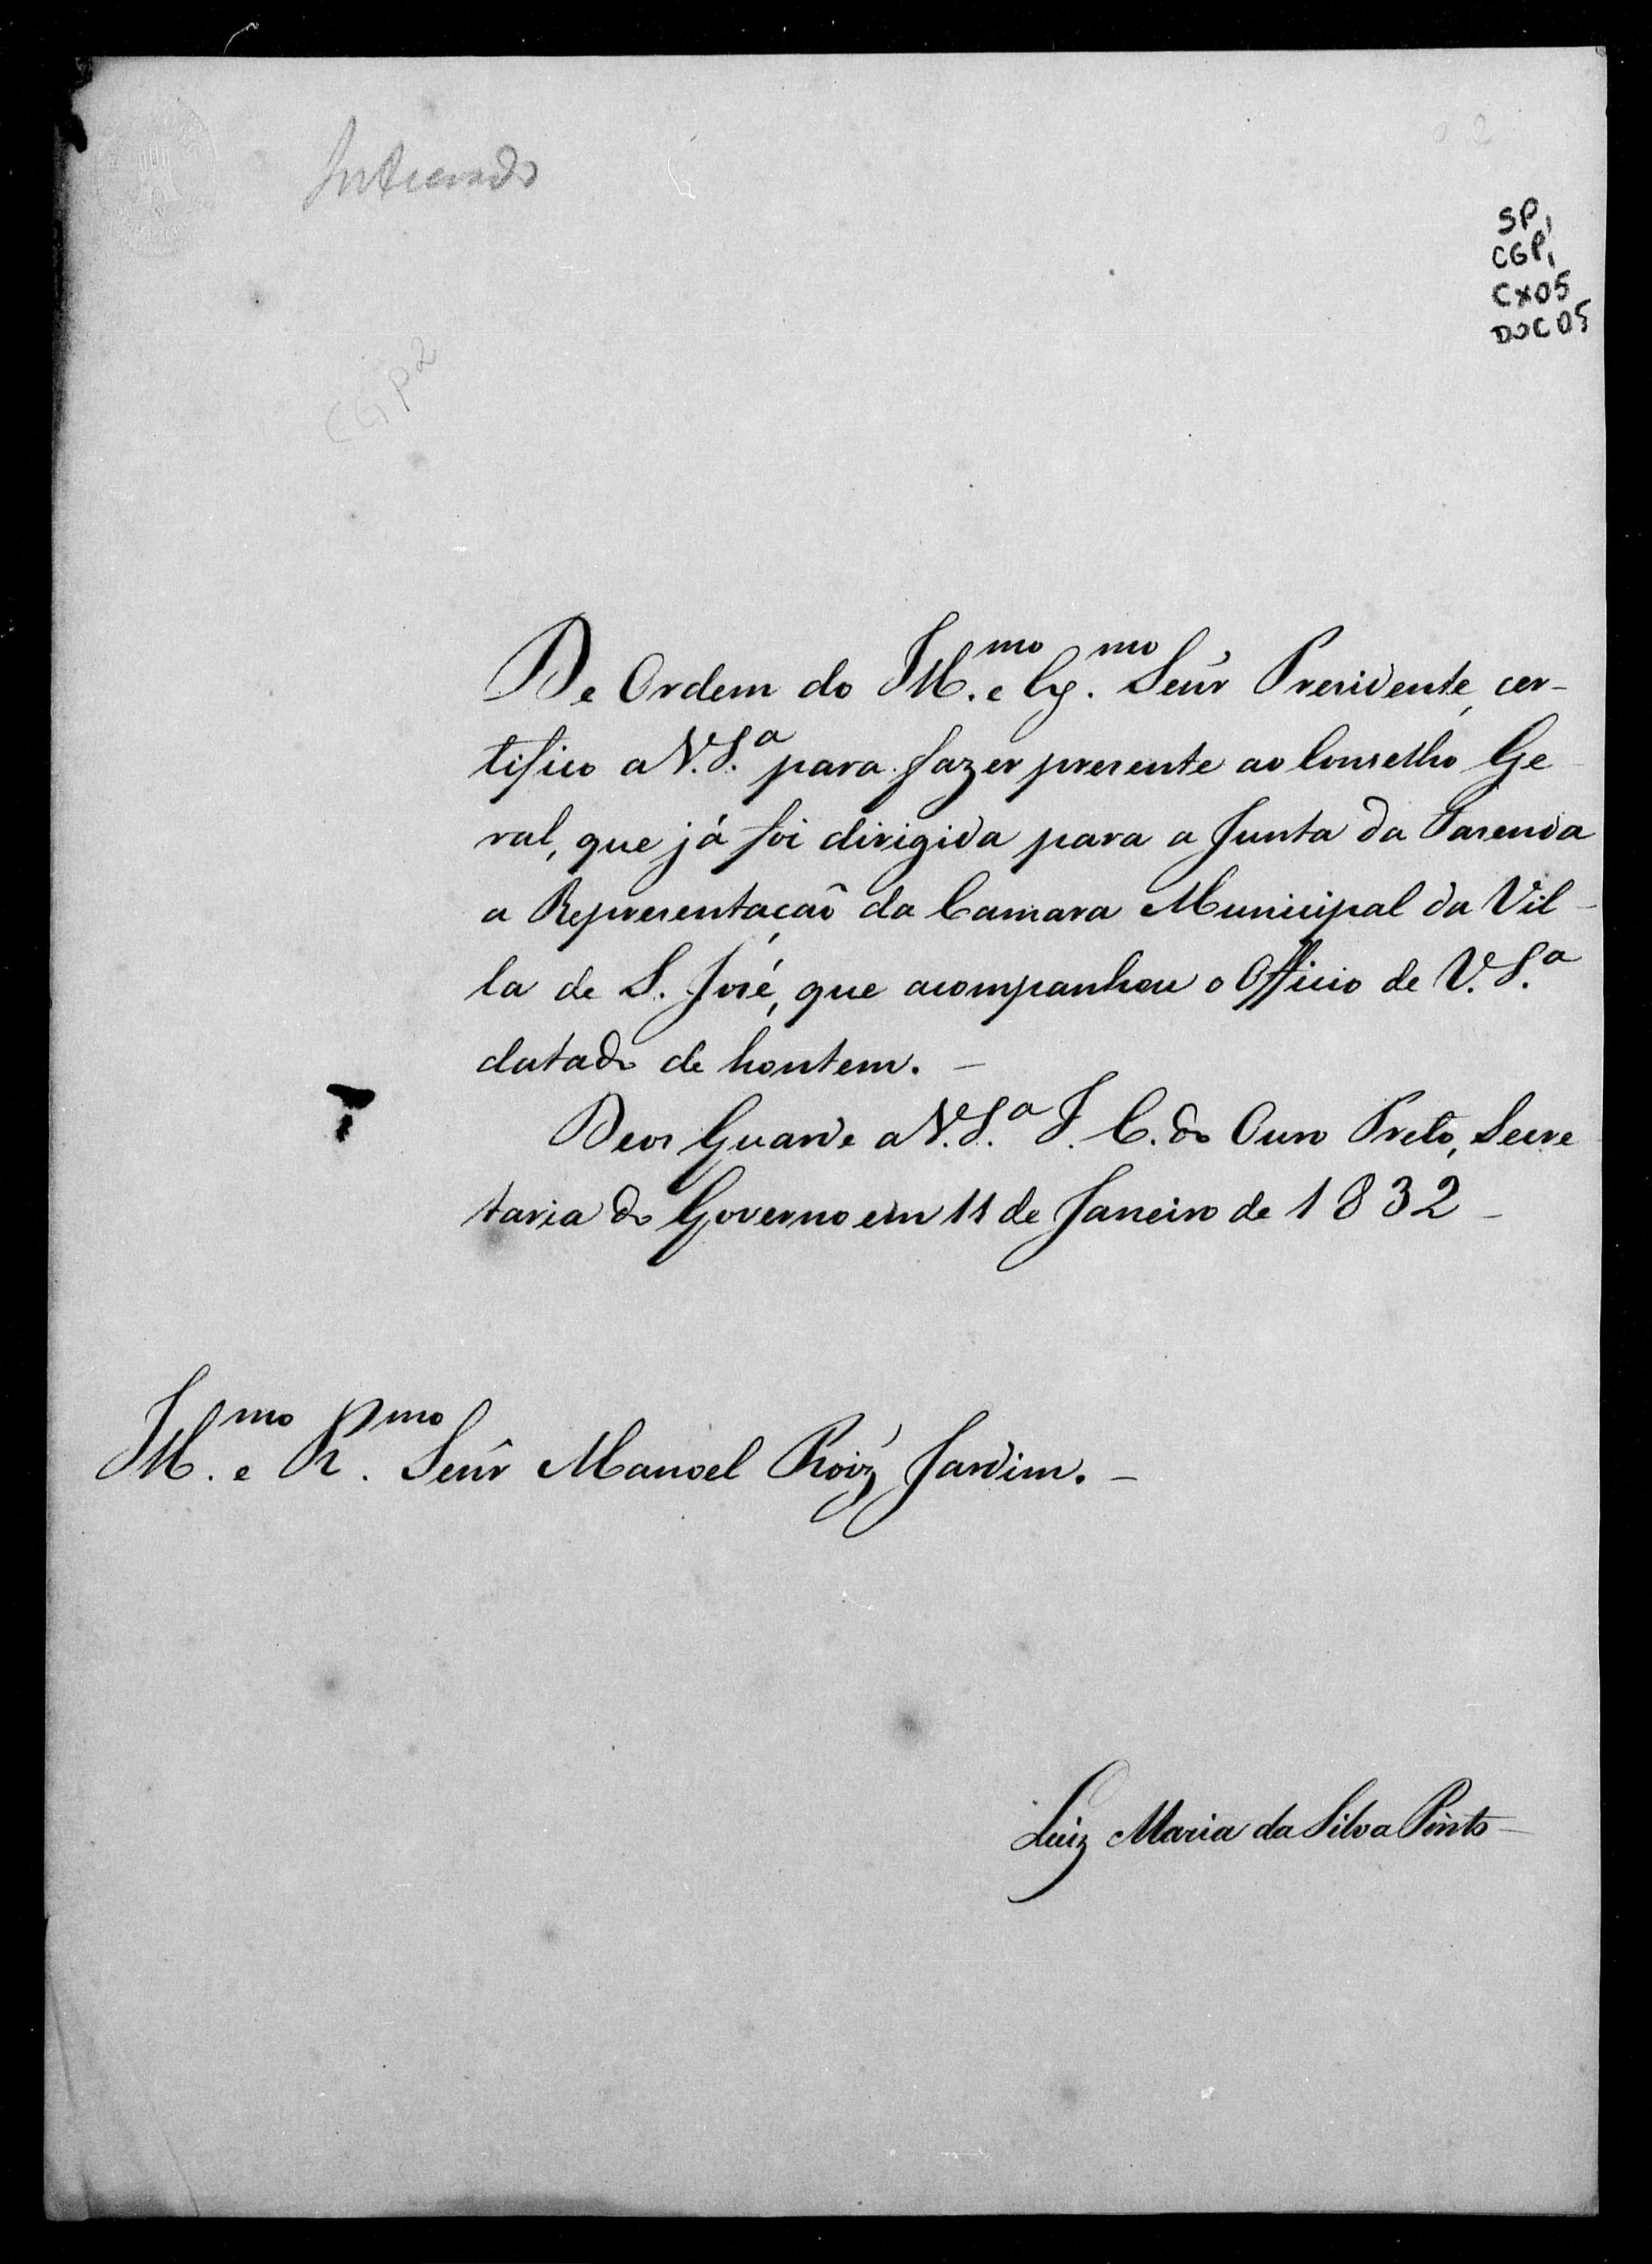 Inteirado
SP1
CGP1
CX05
DOC05
CGP2
De Ordem do Ill.mo e Ex.mo Senr̃ Presidente, cer-
tifico a V. S.a para fazer presente ao Conselho Ge-
ral, que já foi dirigida para a Junta da Fasenda
a Representaçaõ da Camara Municipal da Vil-
la de S. José, que acompanhou o Officio de V. S.a
datado de hontem. —
Deos Guarde a V. S.a I. C. do Ouro Preto, Secre
taria do Governo em 11 de Janeiro de 1832 —
Ill.mo e R.mo Senr̃ Manoel Roiz' Jardim. —
Luiz Maria da Silva Pinto —